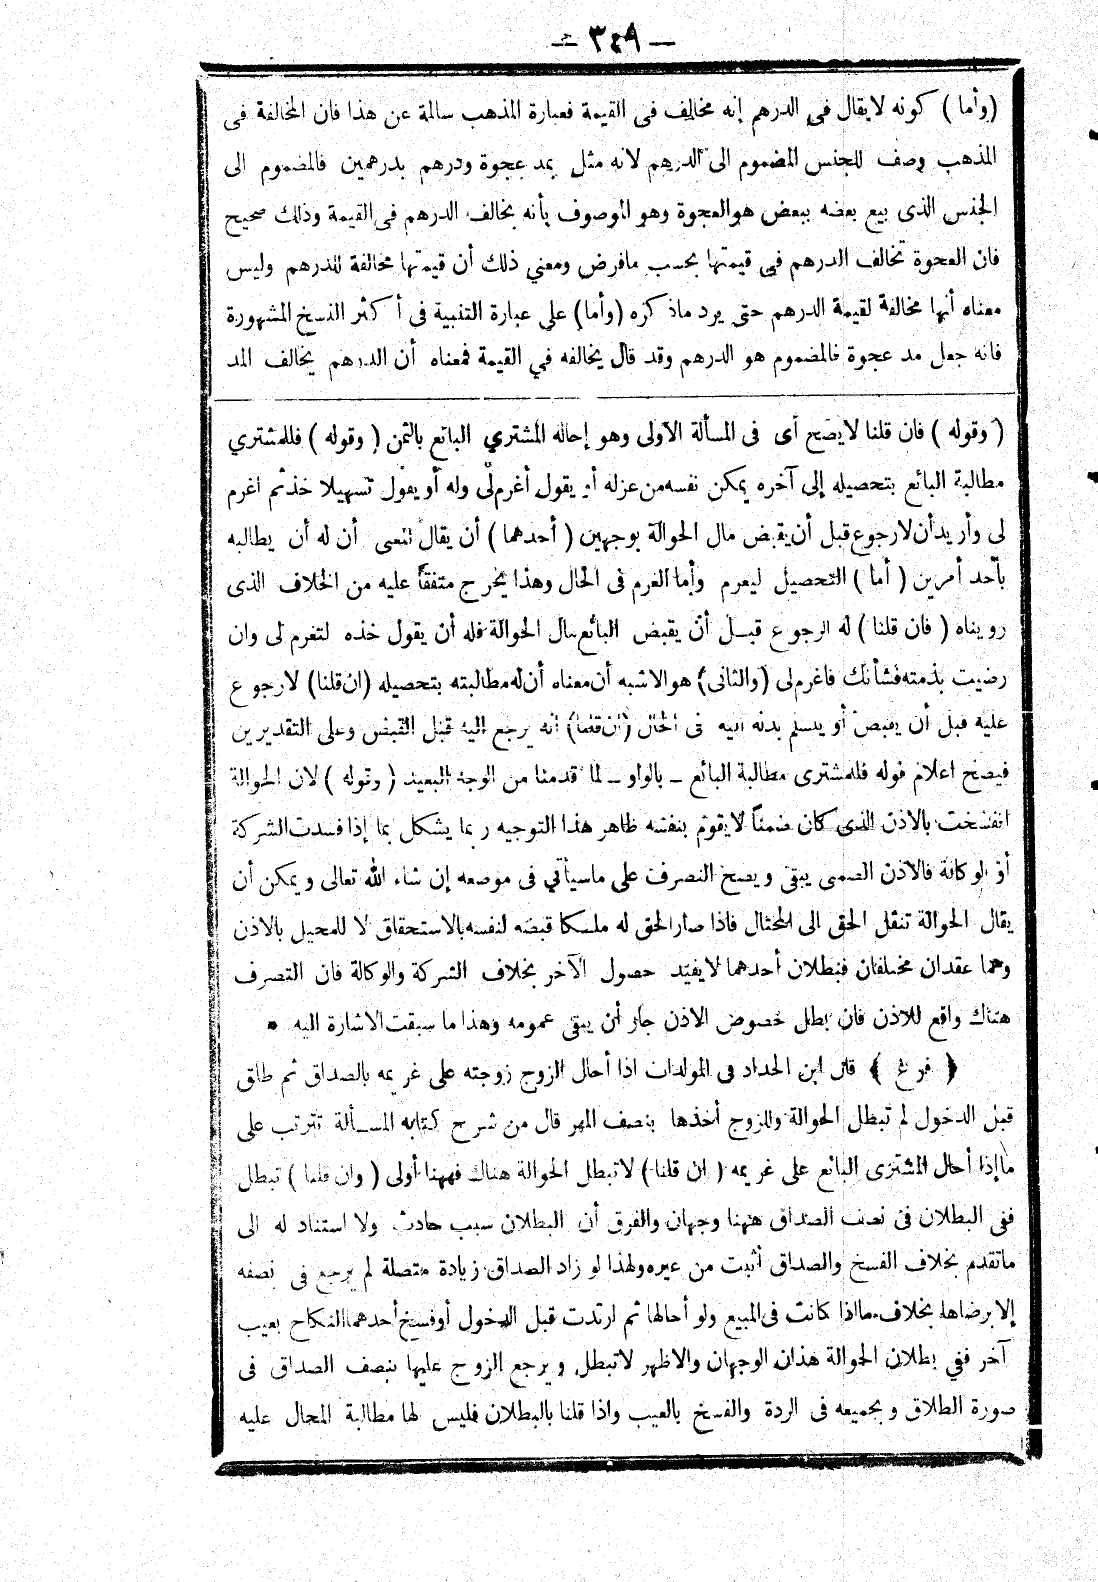 — ٣٤٩ —
(وأما) كونه لا يقال في الدرهم إنه مخالف فى القيمة فعبارة المذهب سالمة عن هذا فان المخالفة فى
المذهب وصف للجنس المضموم الى الدرهم لانه مثل بمد عجوة ودرهم بدرهمين فالمضموم الى
الجنس الذى بيع بعضه ببعض هو العجوة وهو الموصوف بأنه يخالف الدرهم فى القيمة وذلك صحيح
فان العجوة تخالف الدرهم في قيمتها بحسب مافرض ومعني ذلك أن قيمتها مخالفة للدرهم وليس
معناه أنها مخالفة لقيمة الدرهم حتى يرد ماذكره (وأما) على عبارة التنبية فى أكثر النسخ المشهورة
فانه جعل مد عجوة فالمضموم هو الدرهم وقد قال يخالفه في القيمة فمعناه أن الدرهم يخالف المد
(وقوله) فان قلنا لايصح أى فى المسألة الاولى وهو إحاله المشتري البائع بالثمن (وقوله) فللمشتري
مطالبة البائع بتحصيله إلى آخره يمكن نفسه من عزله أو يقول أغرم لى وله أو يقول تسهيلا خذ ثم اغرم
لى وأريد أن لارجوع قبل أن يقبض مال الحوالة بوجهين (أحدهما) أن يقال نعى أن له أن يطالبه
بأحد أمرين (أما) التحصيل ليغرم وأما الغرم فى الحال وهذا يخرج متفقاً عليه من الخلاف الذى
رويناه (فان قلنا) له الرجوع قبل أن يقبض البائع مال الحوالة فله أن يقول خذه لتغرم لى وان
رضيت بذمته فشأنك فاغرم لى (والثانى) هو الاشبه أن معناه أن له مطالبته بتحصيله (ان قلنا) لارجوع
عليه قبل أن يقبض أو يسلم بدنه اليه فى الحال (ان قلنا) انه يرجع اليه قبل القبض وعلى التقديرين
فيصح اعلام قوله فللمشترى مطالبة البائع - بالواو - لما قدمنا من الوجه البعيد (وقوله) لان الحوالة
انفسخت بالاذن الذى كان ضمناً لا يقوم بنفسه ظاهر هذا التوجيه ربما يشكل بما إذا فسدت الشركة
أو الوكالة فالاذن الضمى يبقى ويصح التصرف على ماسيأتي فى موضعه إن شاء الله تعالى ويمكن أن
يقال الحوالة تنقل الحق الى المحتال فاذا صار الحق له ملكا قبضه لنفسه بالاستحقاق لا للمحيل بالاذن
وهما عقدان مختلفان فبطلان أحدهما لا يفيد حصول الآخر بخلاف الشركة والوكالة فان التصرف
هناك واقع للاذن فان بطل خصوص الاذن جاز أن يبقى عمومه وهذا ما سبقت الاشارة اليه •
﴿ فرع ﴾ قال ابن الحداد فى المولدات اذا أحال الزوج زوجته على غريمه بالصداق ثم طلق
قبل الدخول لم تبطل الحوالة وللزوج أخذها بنصف المهر قال من شرح كتابه المسألة تترتب على
ما إذا أحال المشترى البائع على غريمه (ان قلنا) لا تبطل الحوالة هناك فههنا أولى (وان قلنا) تبطل
ففى البطلان فى نصف الصداق ههنا وجهان والفرق أن البطلان سبب حادث ولا استناد له الى
ماتقدم بخلاف الفسخ والصداق أثبت من غيره ولهذا لو زاد الصداق زيادة متصلة لم يرجع فى نصفه
إلا برضاها بخلاف مااذا كانت فى المبيع ولو أحالها ثم ارتدت قبل الدخول أو فسخ أحدهما النكاح بعيب
آخر ففي بطلان الحوالة هذان الوجهان والاظهر لا تبطل ويرجع الزوج عليها بنصف الصداق فى
صورة الطلاق وبجميعه فى الردة والفسخ بالعيب واذا قلنا بالبطلان فليس لها مطالبة المحال عليه